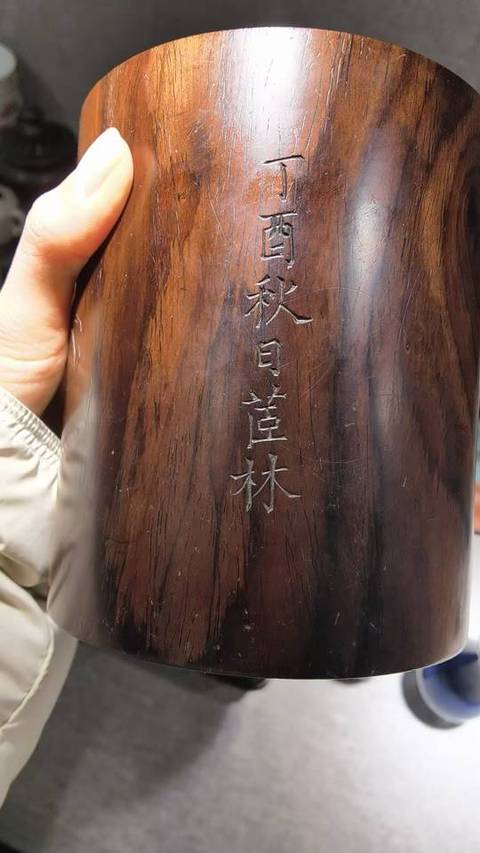 丁酉秋日茝林